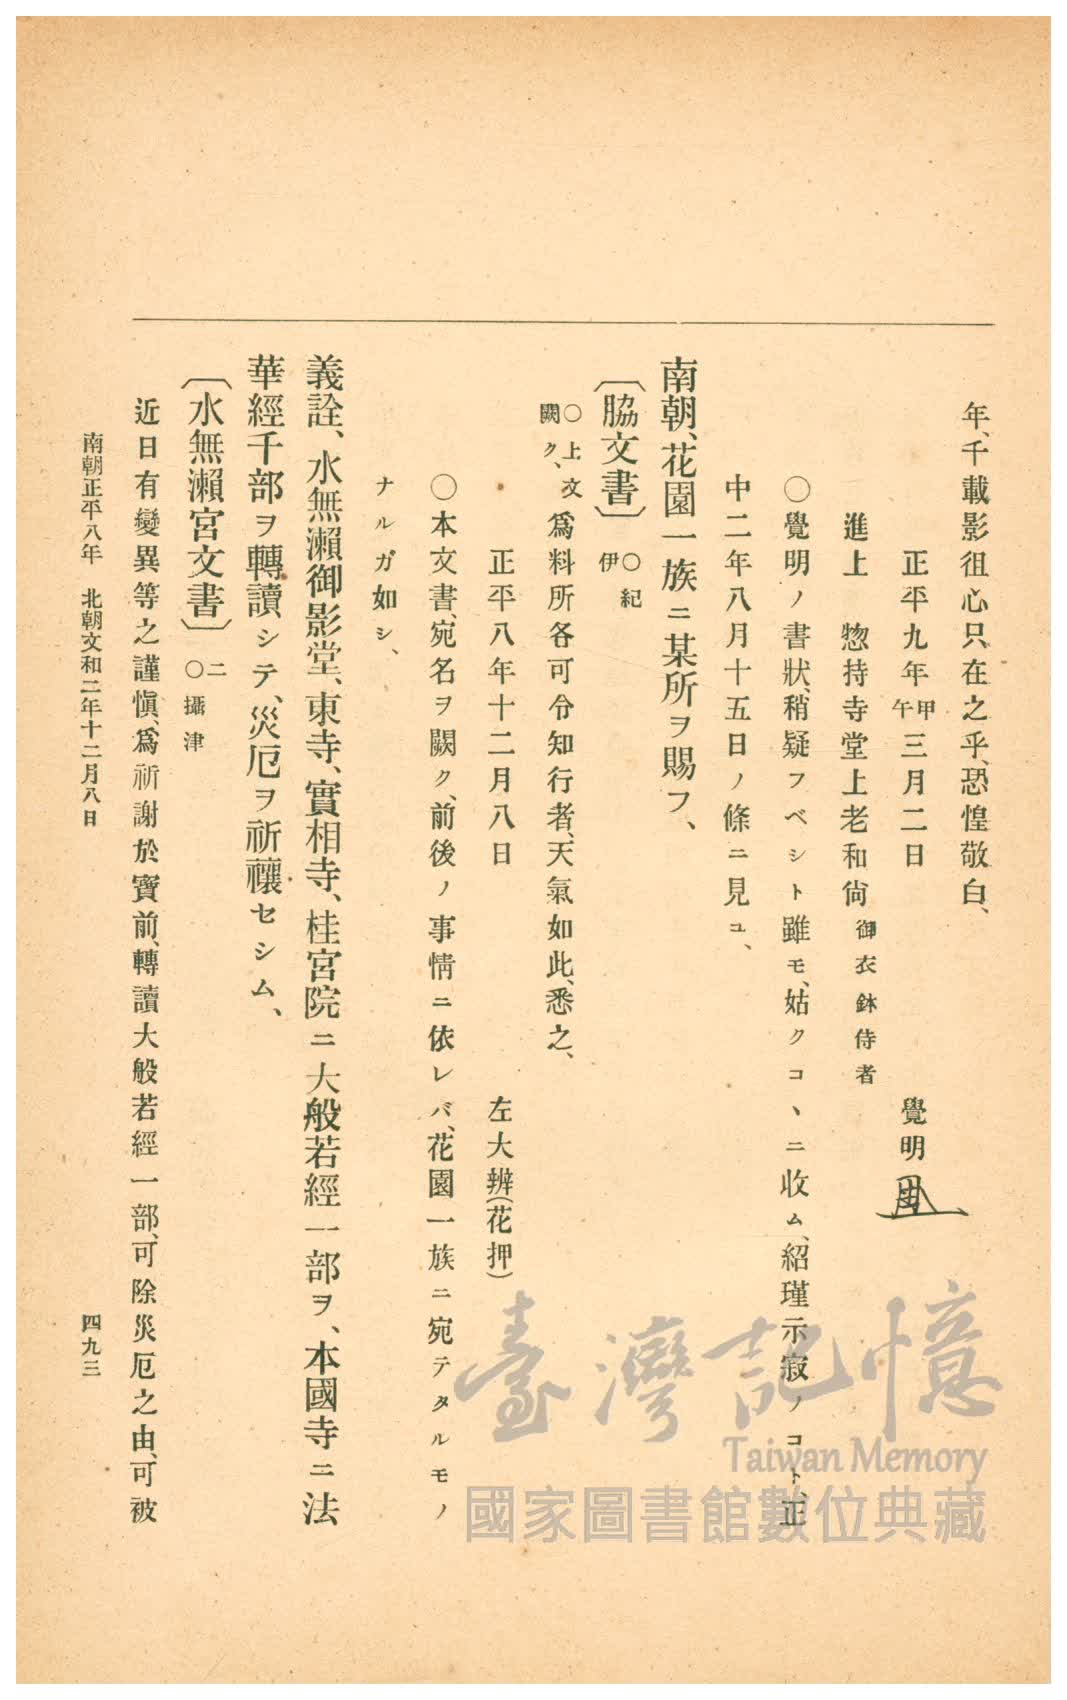 年、千載影徂心只在之乎、恐惶敬白、
正平九年甲午三月二日　覺明
進上　惣持寺堂上老和尙御衣鉢侍者
〇覺明ノ書狀、稍疑フベシト雖モ、姑クコヽニ收ム、紹瑾示寂ノコト、正
中二年八月十五日ノ條ニ見ユ、
南朝、花園一族ニ某所ヲ賜フ、
〔脇文書〕〇紀伊
〇上文闕ク、爲料所各可令知行者、天氣如此、悉之、
正平八年十二月八日　左大辨(花押)
〇本文書、宛名ヲ闕ク、前後ノ事情ニ依レバ、花園一族ニ宛テタルモノ
ナルガ如シ、
義詮、水無瀨御影堂、東寺、實相寺、桂宮院ニ大般若經一部ヲ、本國寺ニ法
華經千部ヲ轉讀シテ、災厄ヲ祈禳セシム、
〔水無瀨宮文書〕二〇攝津
近日有變異等之謹愼、爲祈謝於寶前、轉讀大般若經一部、可除災厄之由、可被
南朝正平八年　北朝文和二年十二月八日　四九三
臺灣記憶
Taiwan Memory
國家圖書館數位典藏